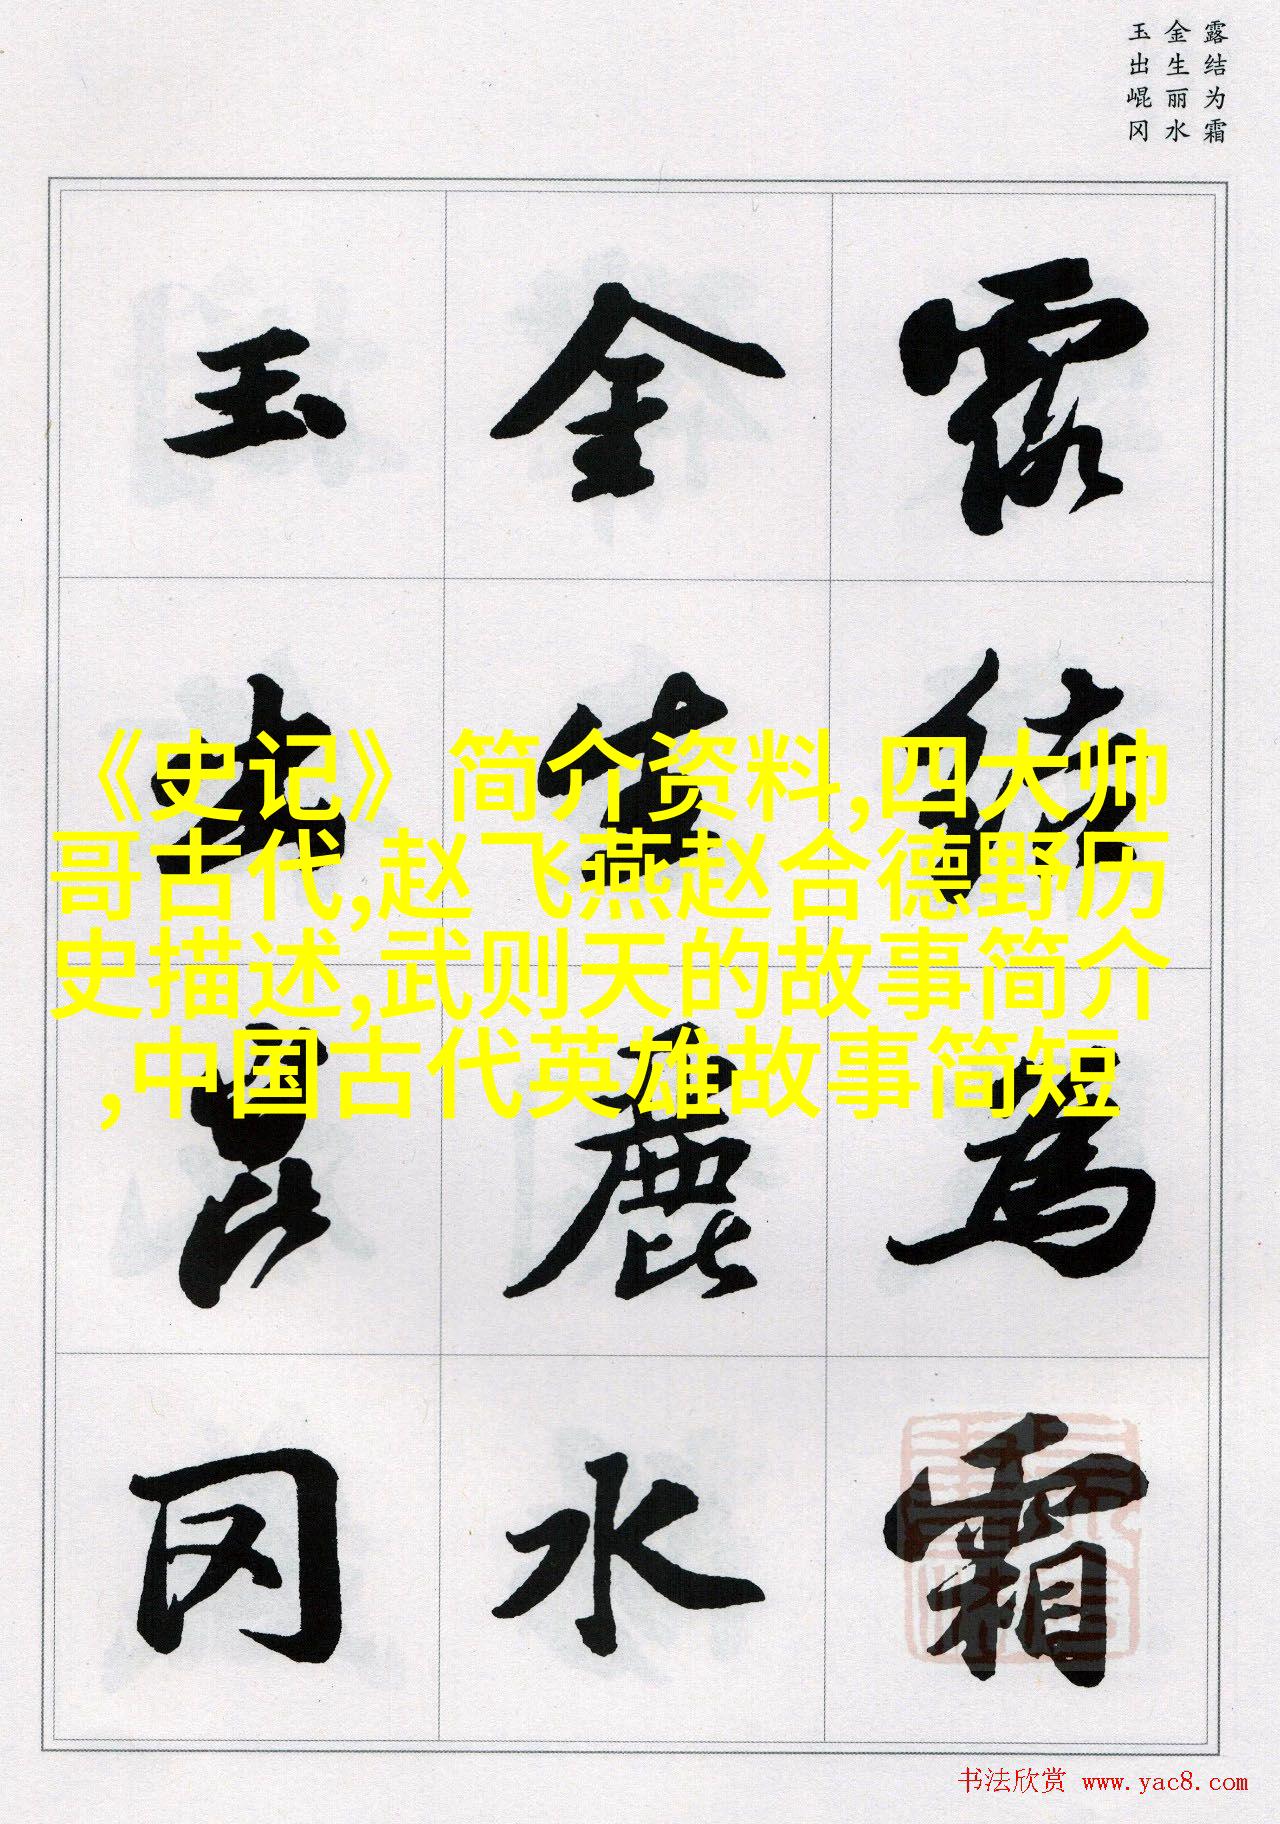 露结为霜
金生丽水
玉出崐冈
露结为霜
金生麗水
玉出崑冈
《史记》简介资料,四大帅
哥古代,赵飞燕赵合德野历
史描述,武则天的故事简介
,中国古代英雄故事简短
书法欣赏 www.yac8.com